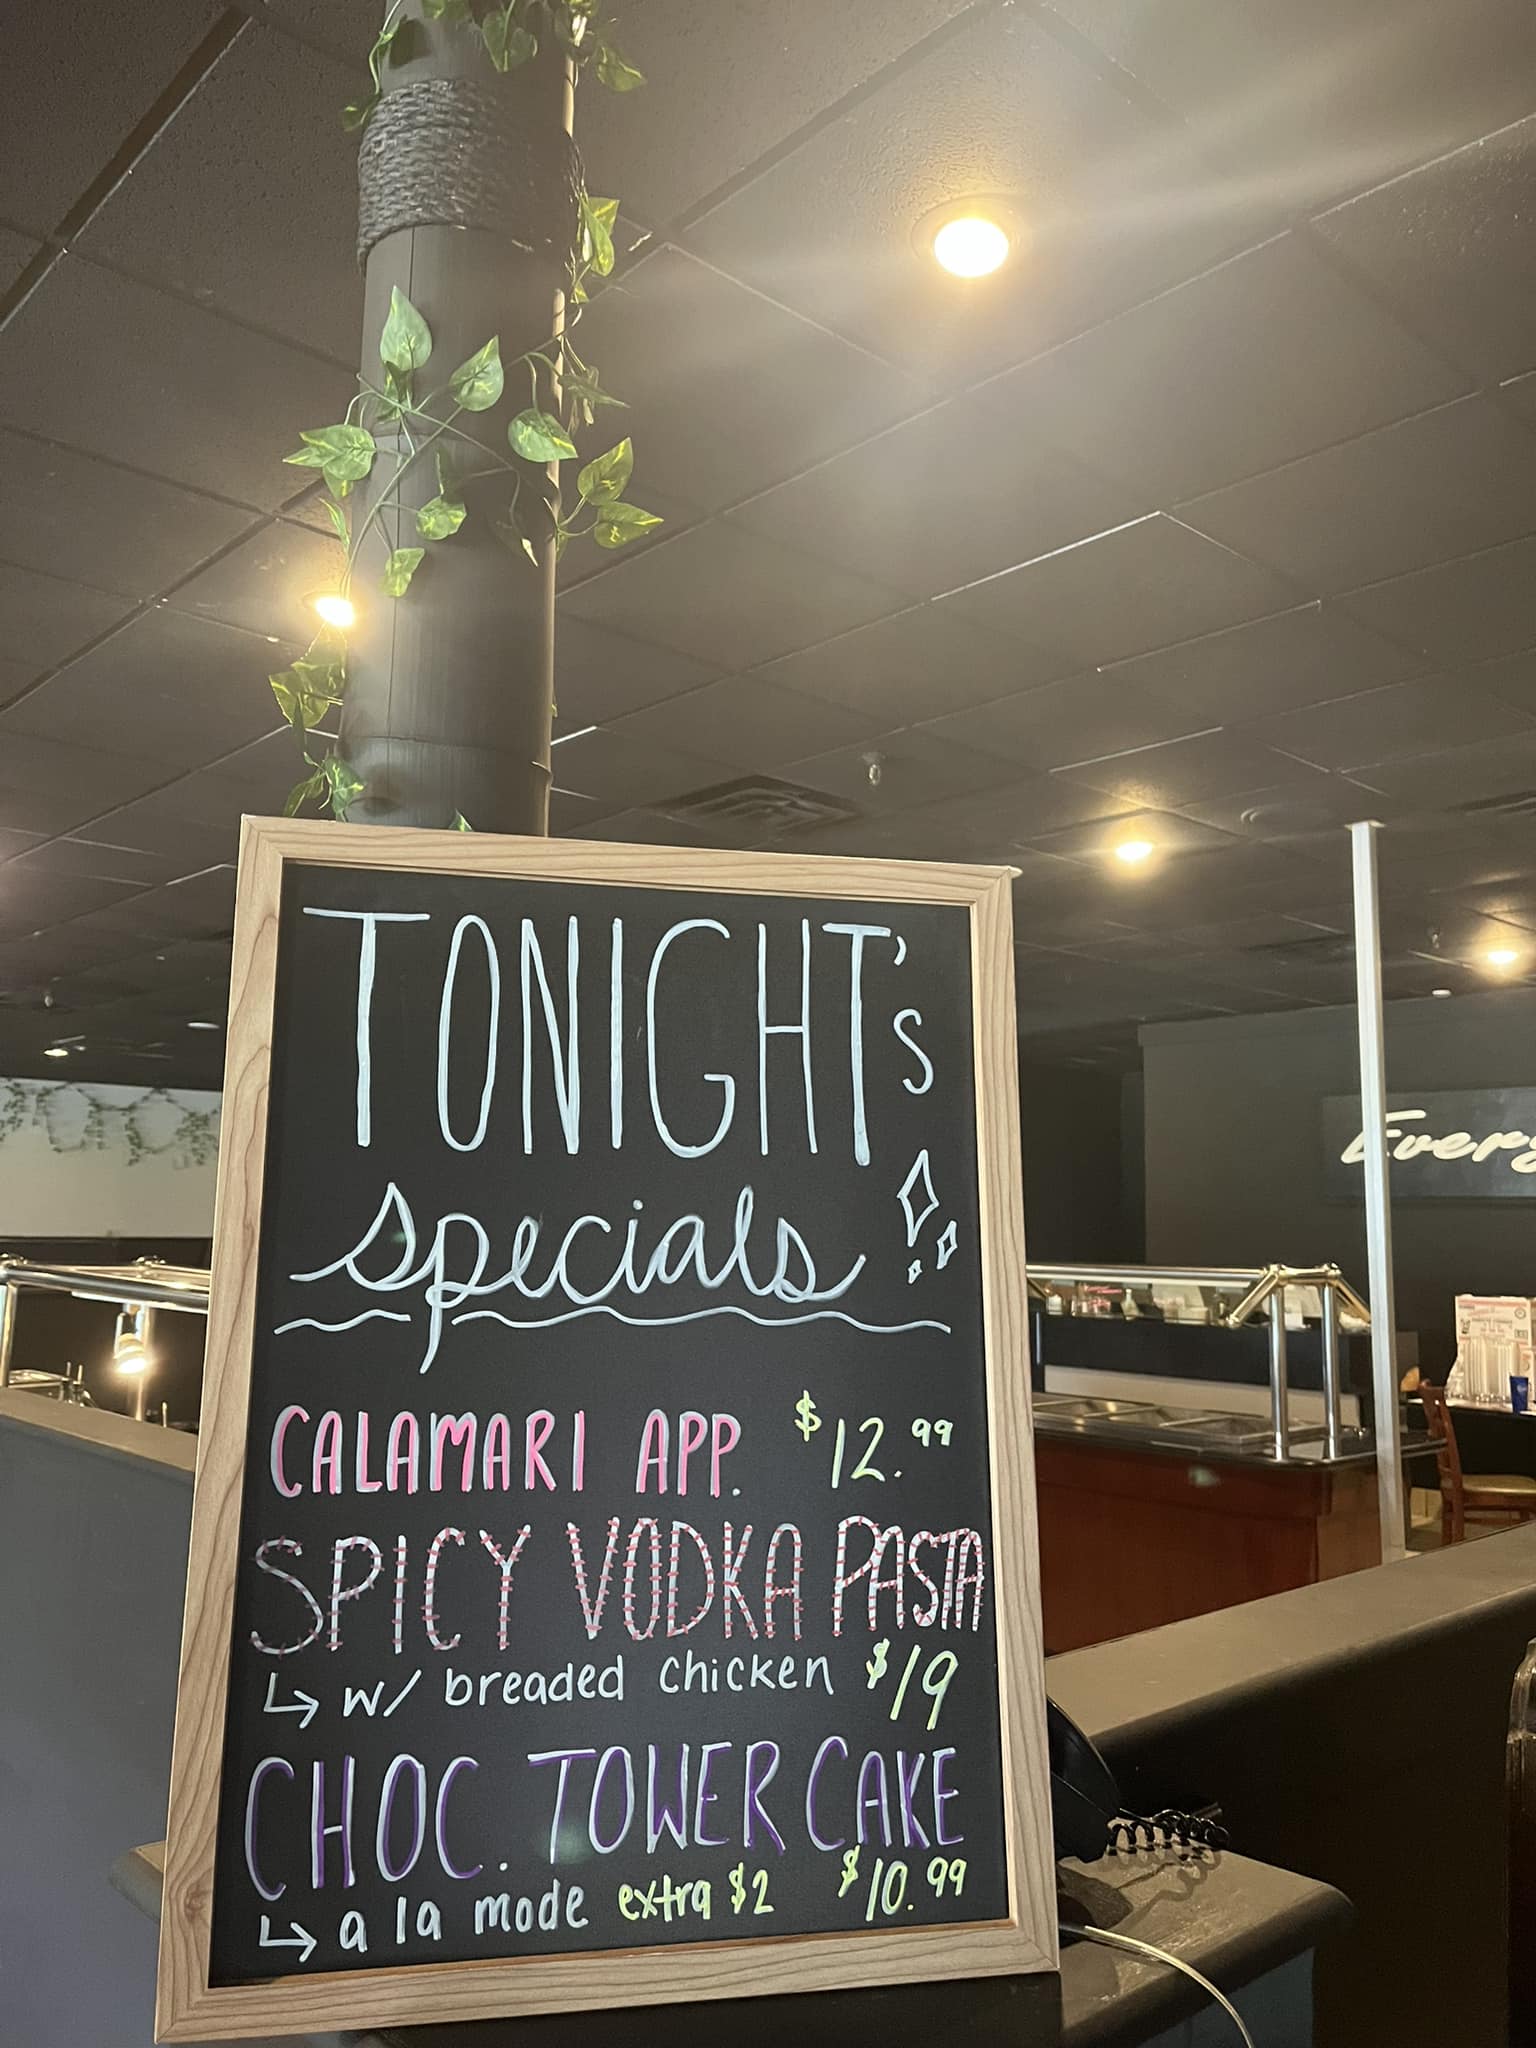 TONIGHT's
specials
CALAMARI APP. $12.99
SPICY VODKA PASTA
↳ w/ breaded chicken $19
CHOC. TOWER CAKE
↳ a la mode extra $2 $10.99